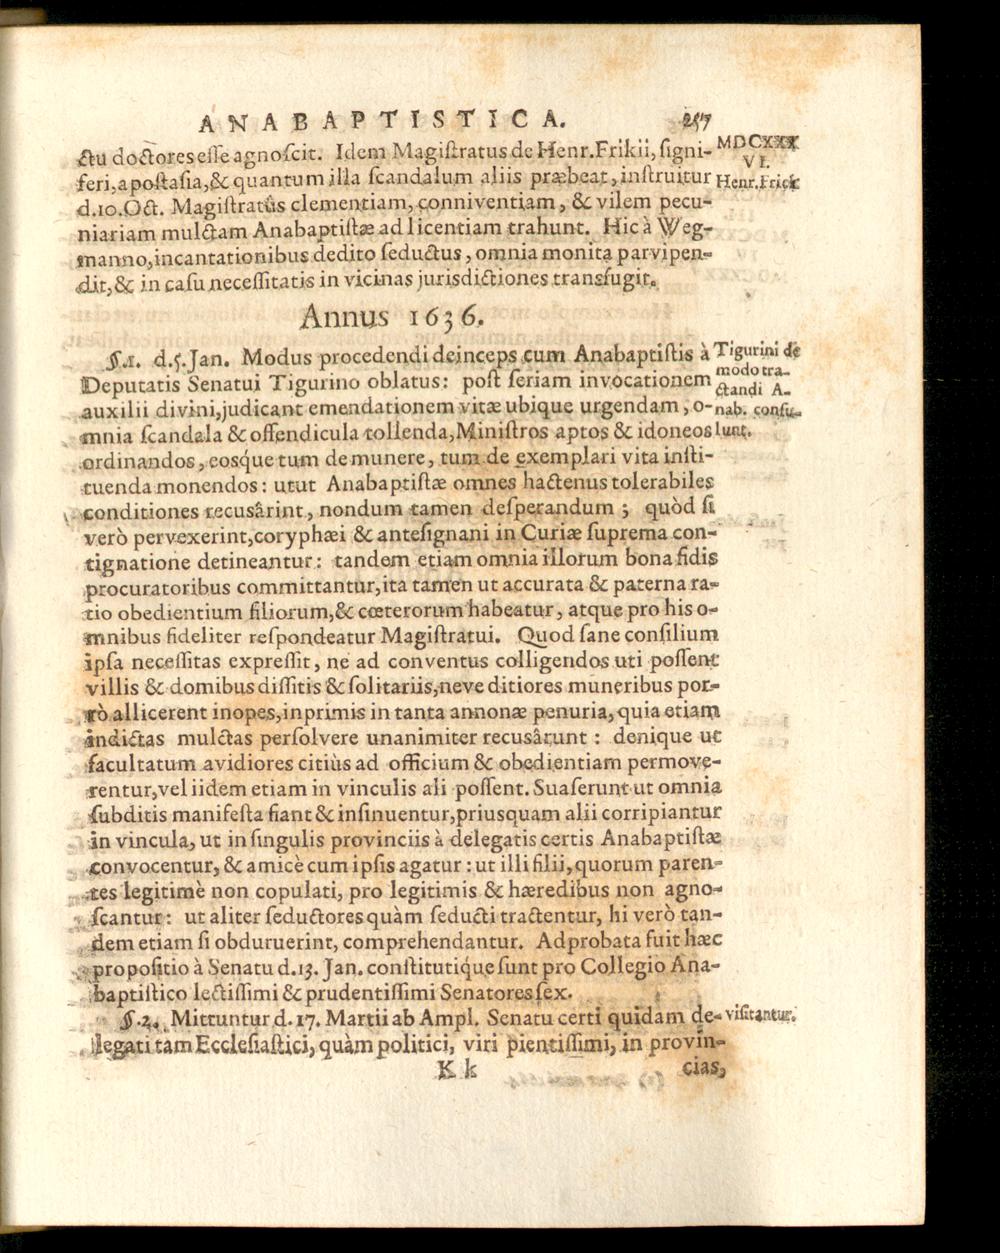 ANABAPTISTICA. 257
ctu doctores esse agnoscit. Idem Magistratus de Henr. Frikii, signi-
MDCXXX
VI.
feri, apostasia, & quantum illa scandalum aliis præbeat, instruitur
Henr. Frick
d.10. Oct. Magistratûs clementiam, conniventiam, & vilem pecu-
niariam mulctam Anabaptistæ ad licentiam trahunt. Hic à Weg-
manno, incantationibus dedito seductus, omnia monita parvipen-
dit, & in casu necessitatis in vicinas jurisdictiones transfugit.
Annus 1636.
§.1. d.5. Jan. Modus procedendi deinceps cum Anabaptistis à
Deputatis Senatui Tigurino oblatus: post seriam invocationem
auxilii divini, judicant emendationem vitæ ubique urgendam, o-
mnia scandala & offendicula tollenda, Ministros aptos & idoneos
Tigurini de
modo tra-
ctandi A-
nab. consu-
lunt.
ordinandos, eosque tum de munere, tum de exemplari vita insti-
tuenda monendos: utut Anabaptistæ omnes hactenus tolerabiles
conditiones recusârint, nondum tamen desperandum; quòd si
verò pervexerint, coryphæi & antesignani in Curiæ suprema con-
tignatione detineantur: tandem etiam omnia illorum bona fidis
procuratoribus committantur, ita tamen ut accurata & paterna ra-
tio obedientium filiorum, & cœterorum habeatur, atque pro his o-
mnibus fideliter respondeatur Magistratui. Quod sane consilium
ipsa necessitas expressit, ne ad conventus colligendos uti possent
villis & domibus dissitis & solitariis, neve ditiores muneribus por-
rò allicerent inopes, inprimis in tanta annonæ penuria, quia etiam
indictas mulctas persolvere unanimiter recusârunt: denique ut
facultatum avidiores citiùs ad officium & obedientiam permove-
rentur, vel iidem etiam in vinculis ali possent. Suaserunt ut omnia
subditis manifesta fiant & insinuentur, priusquam alii corripiantur
in vincula, ut in singulis provinciis à delegatis certis Anabaptistæ
convocentur, & amicè cum ipsis agatur: ut illi filii, quorum paren-
tes legitimè non copulati, pro legitimis & hæredibus non agno-
scantur: ut aliter seductores quàm seducti tractentur, hi verò tan-
dem etiam si obduruerint, comprehendantur. Adprobata fuit hæc
propositio à Senatu d.13. Jan. constitutíque sunt pro Collegio Ana-
baptistico lectissimi & prudentissimi Senatores sex.
§.2. Mittuntur d. 17. Martii ab Ampl. Senatu certi quidam de-
visitantur.
legati tam Ecclesiastici, quàm politici, viri pientissimi, in provin-
K k cias,